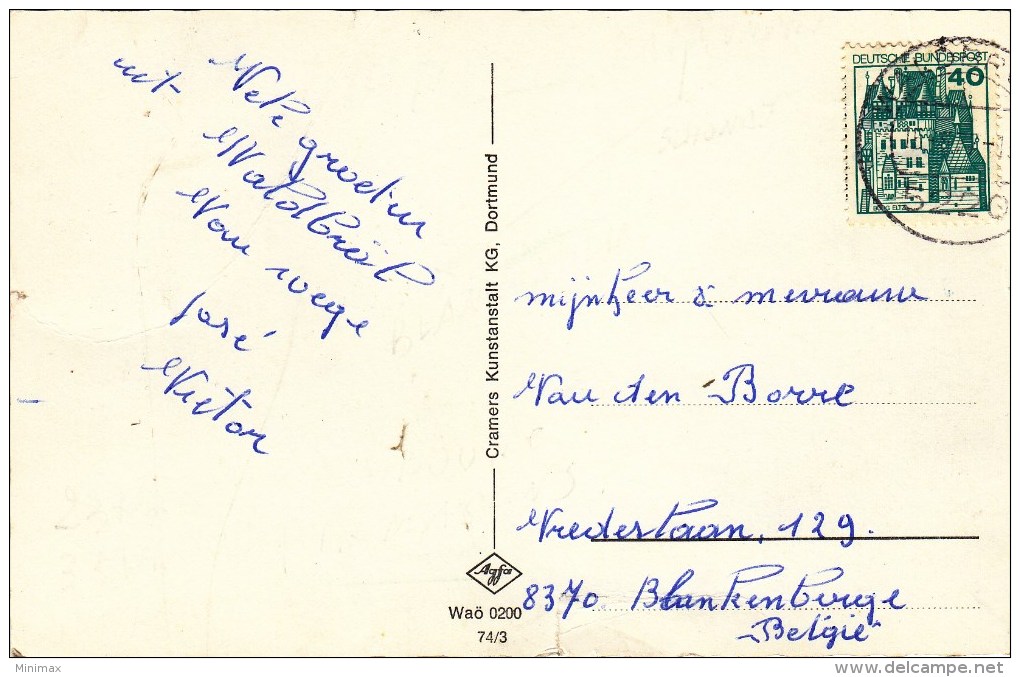 Vele groeten
uit Waldbröl
Van wege
José
Victor
Cramers Kunstanstalt KG, Dortmund
Agfa
Waö 0200
74/3
DEUTSCHE BUNDESPOST
40
BURG ELTZ
mijnheer & mevrouw
Van den Borre
Vredeslaan, 129.
8370 Blankenberge
België
Minimax
www.delcampe.net